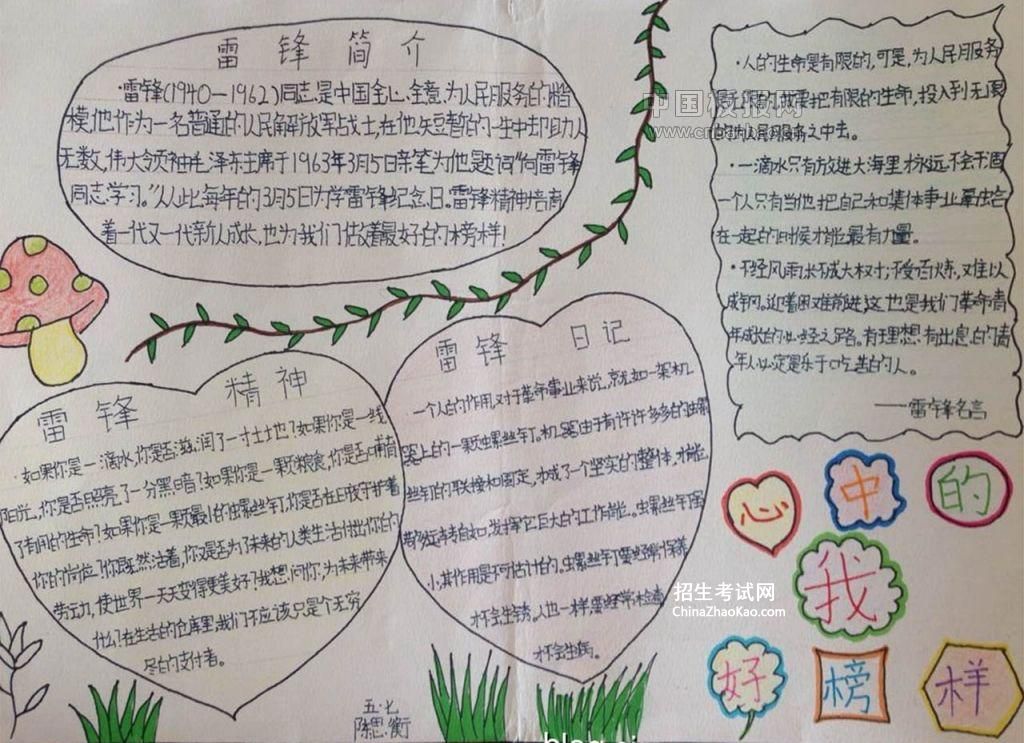 雷锋简介
·雷锋(1940—1962)同志,是中国全心、全意、为人民服务的楷
模,他作为一名普通的人民解放军战士,在他短暂的一生中却助人
无数,伟大领袖毛泽东主席于1963年3月5日亲笔为他题词“向雷锋
同志学习。”从此每年的3月5日为学雷锋纪念日。雷锋精神培育
着一代又一代新人成长,也为我们做着最好的榜样!
·人的生命是有限的,可是,为人民服务
是无限的,我要把有限的生命,投入到无限
的为人民服务之中去。
·一滴水只有放进大海里才永远不会干涸
一个人只有当他把自己和集体事业融合
在一起的时候才能最有力量。
·不经风雨,长不成大树;不受百炼,难以
成钢。迎着困难前进,这也是我们革命青
年成长的必经之路。有理想有出息的青
年人必定是乐于吃苦的人。
——雷锋名言
雷锋精神
·如果你是一滴水,你是否滋润了一寸土地?如果你是一线
阳光,你是否照亮了一分黑暗?如果你是一颗粮食,你是否哺育
了有用的生命?如果你是一颗最小的螺丝钉,你是否在日夜守护着
你的岗位?你既然活着,你是否为了未来的人类生活付出你的
劳动,使世界一天天变得更美好?我想问你,为未来带来
什么?在生活的仓库里,我们不应该只是个无穷
尽的支付者。
雷锋日记
·一个人的作用,对于革命事业来说,就如一架机
器上的一颗螺丝钉。机器由于有许许多多的螺
丝钉的联接和固定,才成了一个坚实的整体,才能
够运转自如,发挥它巨大的工作能。螺丝钉虽
小,其作用是不可估计的。螺丝钉要经常保养
才不会生锈。人也一样,要经常检查
才不会生病。
心中的
我
好榜样
五·七
陈思衡
中国模报网
招生考试网
ChinaZhaoKao.com